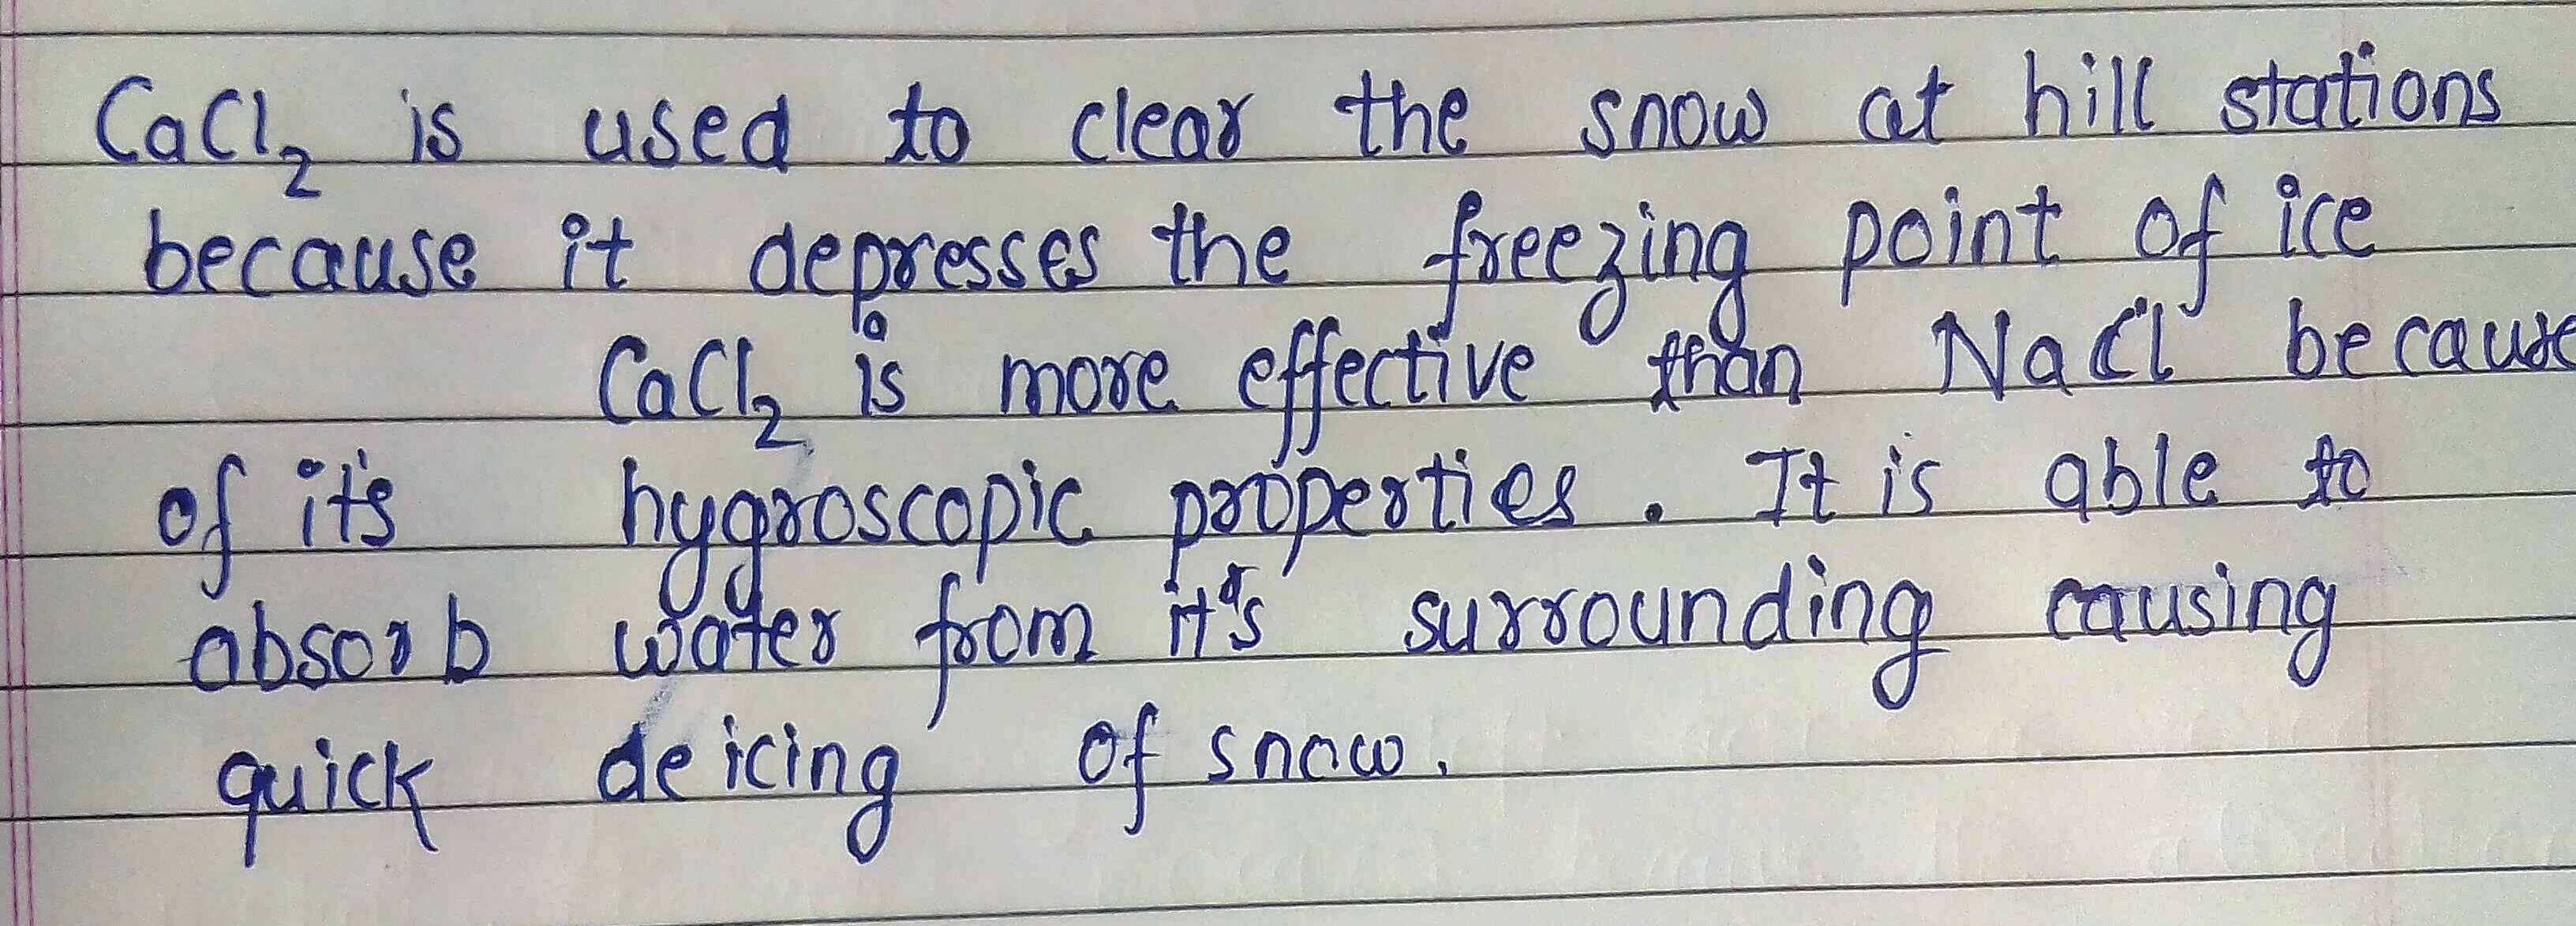 CaCl₂ is used to clear the snow at hill stations
because it depresses the freezing point of ice
CaCl₂ is more effective than NaCl because
of it's hygroscopic properties. It is able to
absorb water from it's surrounding causing
quick deicing of snow.